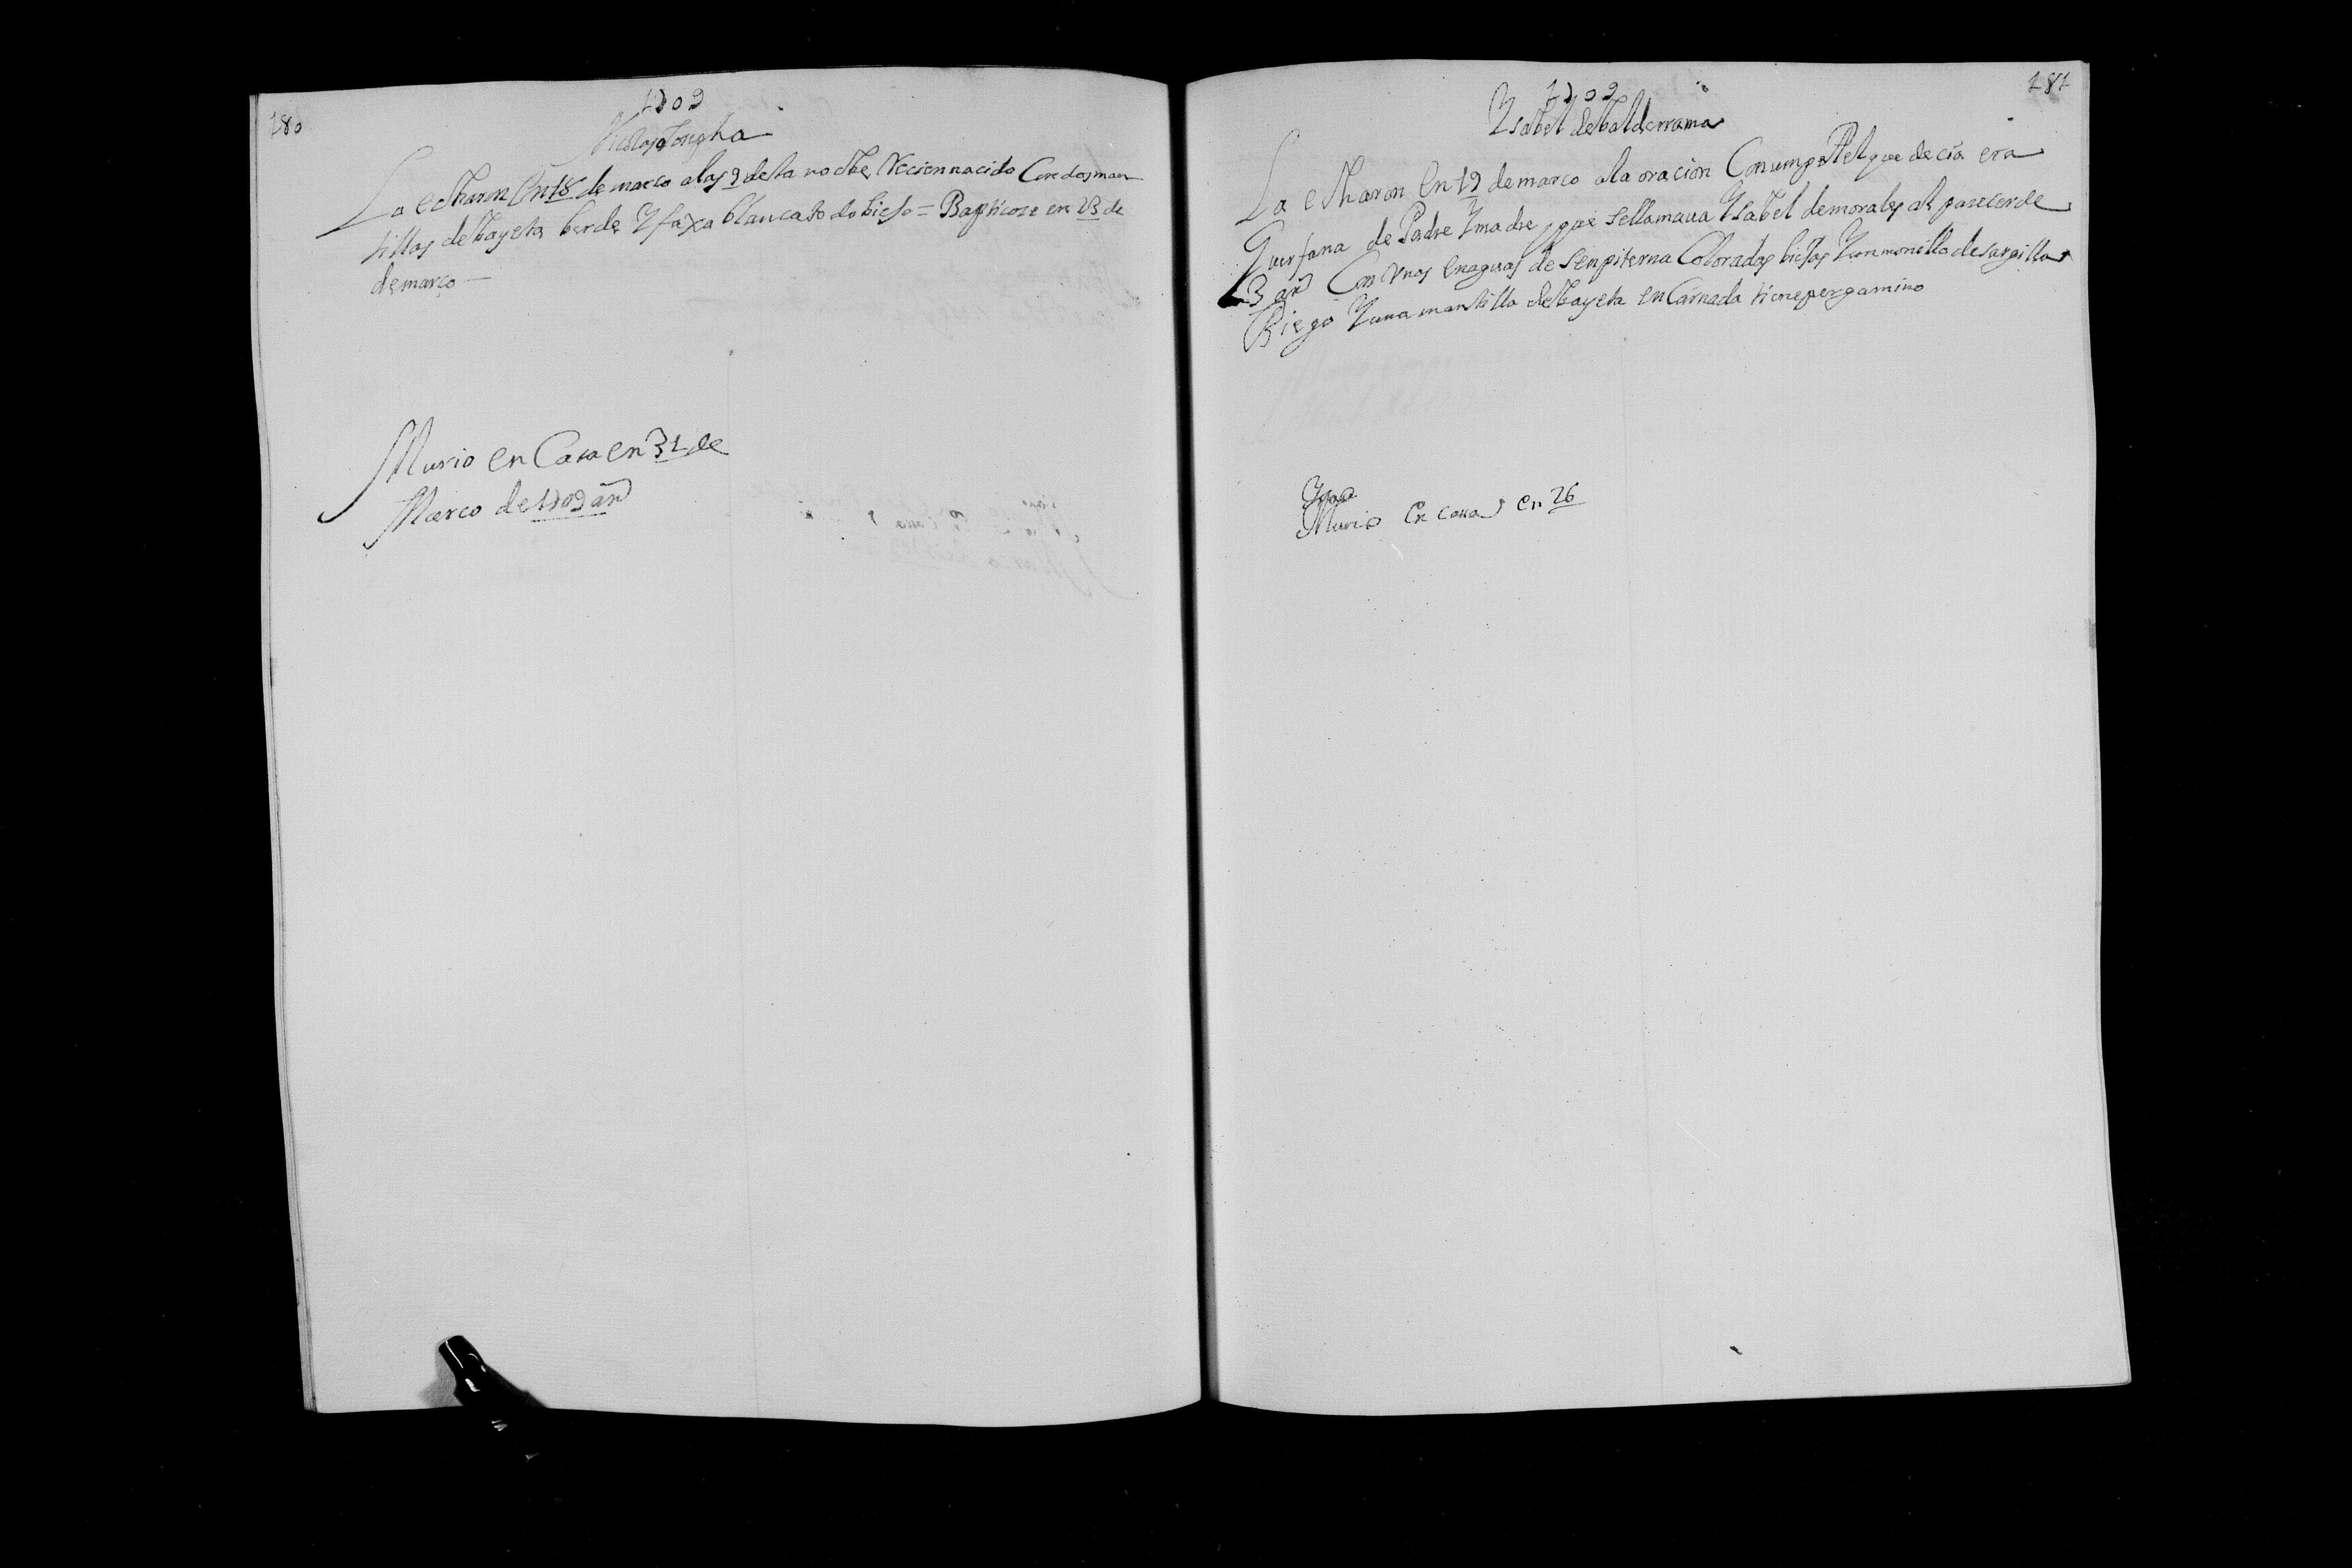 180
1709
Nicolasa Josepha
La echaron En 18 de março a las 9 de la noche Recien nacido Con dos man
tillas de bayeta berde Y faxa blanca todo biejo = Baptiçose en 23 de
de março
Murio en Casa en 31 de
Março de 1709 añ
181
1709
Ysabel de balderrama
La echaron En 19 de março a la oracion Con un papel que decia era
Guerfana de Padre Y madre y que se llamaua Ysabel de morales al parecer de
3 añ Con Unas enaguas de Senpiterna Coloradas biejas Y un monillo de sargilla
Biego Y una mantilla de bayeta enCarnada tiene pergamino
Murio en casa en 26